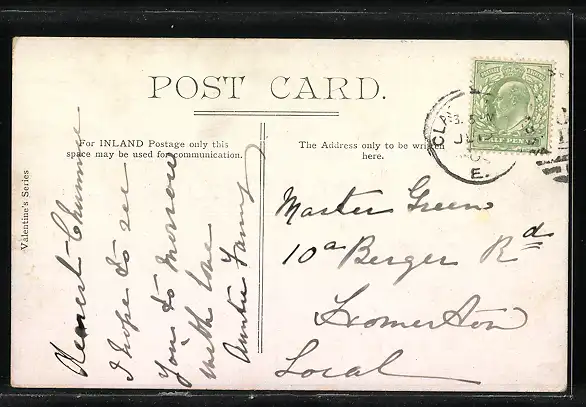 POST CARD.
For INLAND Postage only this
space may be used for communication.
The Address only to be written
here.
Valentine's Series
Dearest Chummie
I hope to see
you to morrow
with love
Auntie Fanny
Master Green
10a Berger Rd
Homerton
Local
HALF PENNY
E.